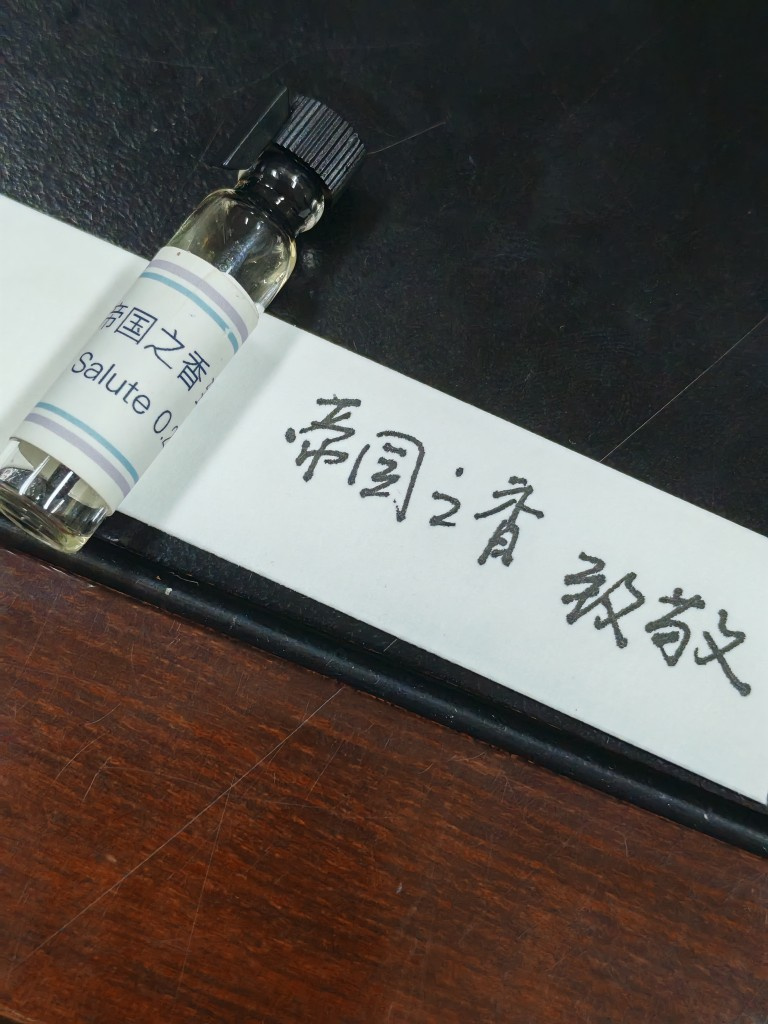 帝国之香
Salute 0.2
帝国之香 致敬